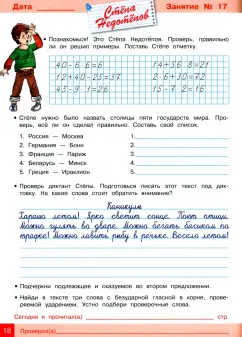 Дата
Стёпа
Недотёпов
Занятие № 17
• Познакомься! Это Стёпа Недотёпов. Проверь, правильно
ли он решил примеры. Поставь Стёпе отметку.
• Стёпе нужно было назвать столицы пяти государств мира. Про-
верь, всё ли он сделал правильно. Составь свой список.
1. Россия — Москва
2. Германия — Бонн
3. Франция — Париж
4. Беларусь — Минск
5. Греция — Ираклион
• Проверь диктант Стёпы. Подготовься писать этот текст под дик-
товку. На каких словах стоит обратить особое внимание?
Каникулы
Харашо летом! Ярко светит сонце. Поют птицы.
Можно гулять во дваре. Можно бегать басиком по
травке! Можно лавить рыбу в речьке. Весело летом!
• Подчеркни подлежащее и сказуемое во втором предложении.
• Найди в тексте три слова с безударной гласной в корне, прове-
ряемой ударением. Устно подбери проверочные слова.
Сегодня я прочитал(а) стр.
18
Проверил(а)